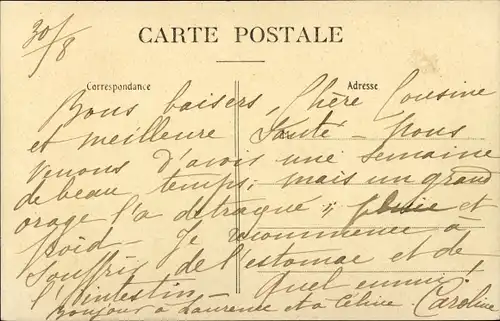 30/8
CARTE POSTALE
Correspondance
Adresse
Bons baisers, Chère Cousine
et meilleure Santé - Nous
venons d'avoir une semaine
de beau temps, mais un grand
orage l'a détraqué; pluie et
froid - Je recommence à
souffrir de l'estomac et de
l'intestin - Quel ennui!
Bonjour à Laurence et a Céline. Caroline